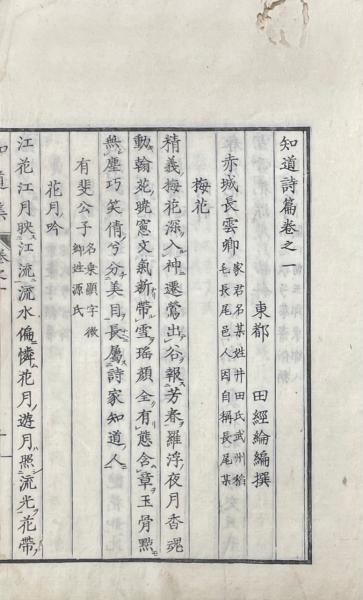 知道詩篇卷之一
東都　田經綸編撰
赤城長雲卿 家君名某姓井田氏武州 毛長尾邑人因自稱長尾某
梅花
精義梅花深入神遷鶯出谷報芳春羅浮夜月香魂
動翰苑曉窓文氣新帶雪瑤顏全有態含章玉骨點
無塵巧笑倩兮分美目長屬詩家知道人
有斐公子 名彙顯字微 卿姓源氏
花月吟
江花江月映江流流水偏憐花月遊月照流光花帶